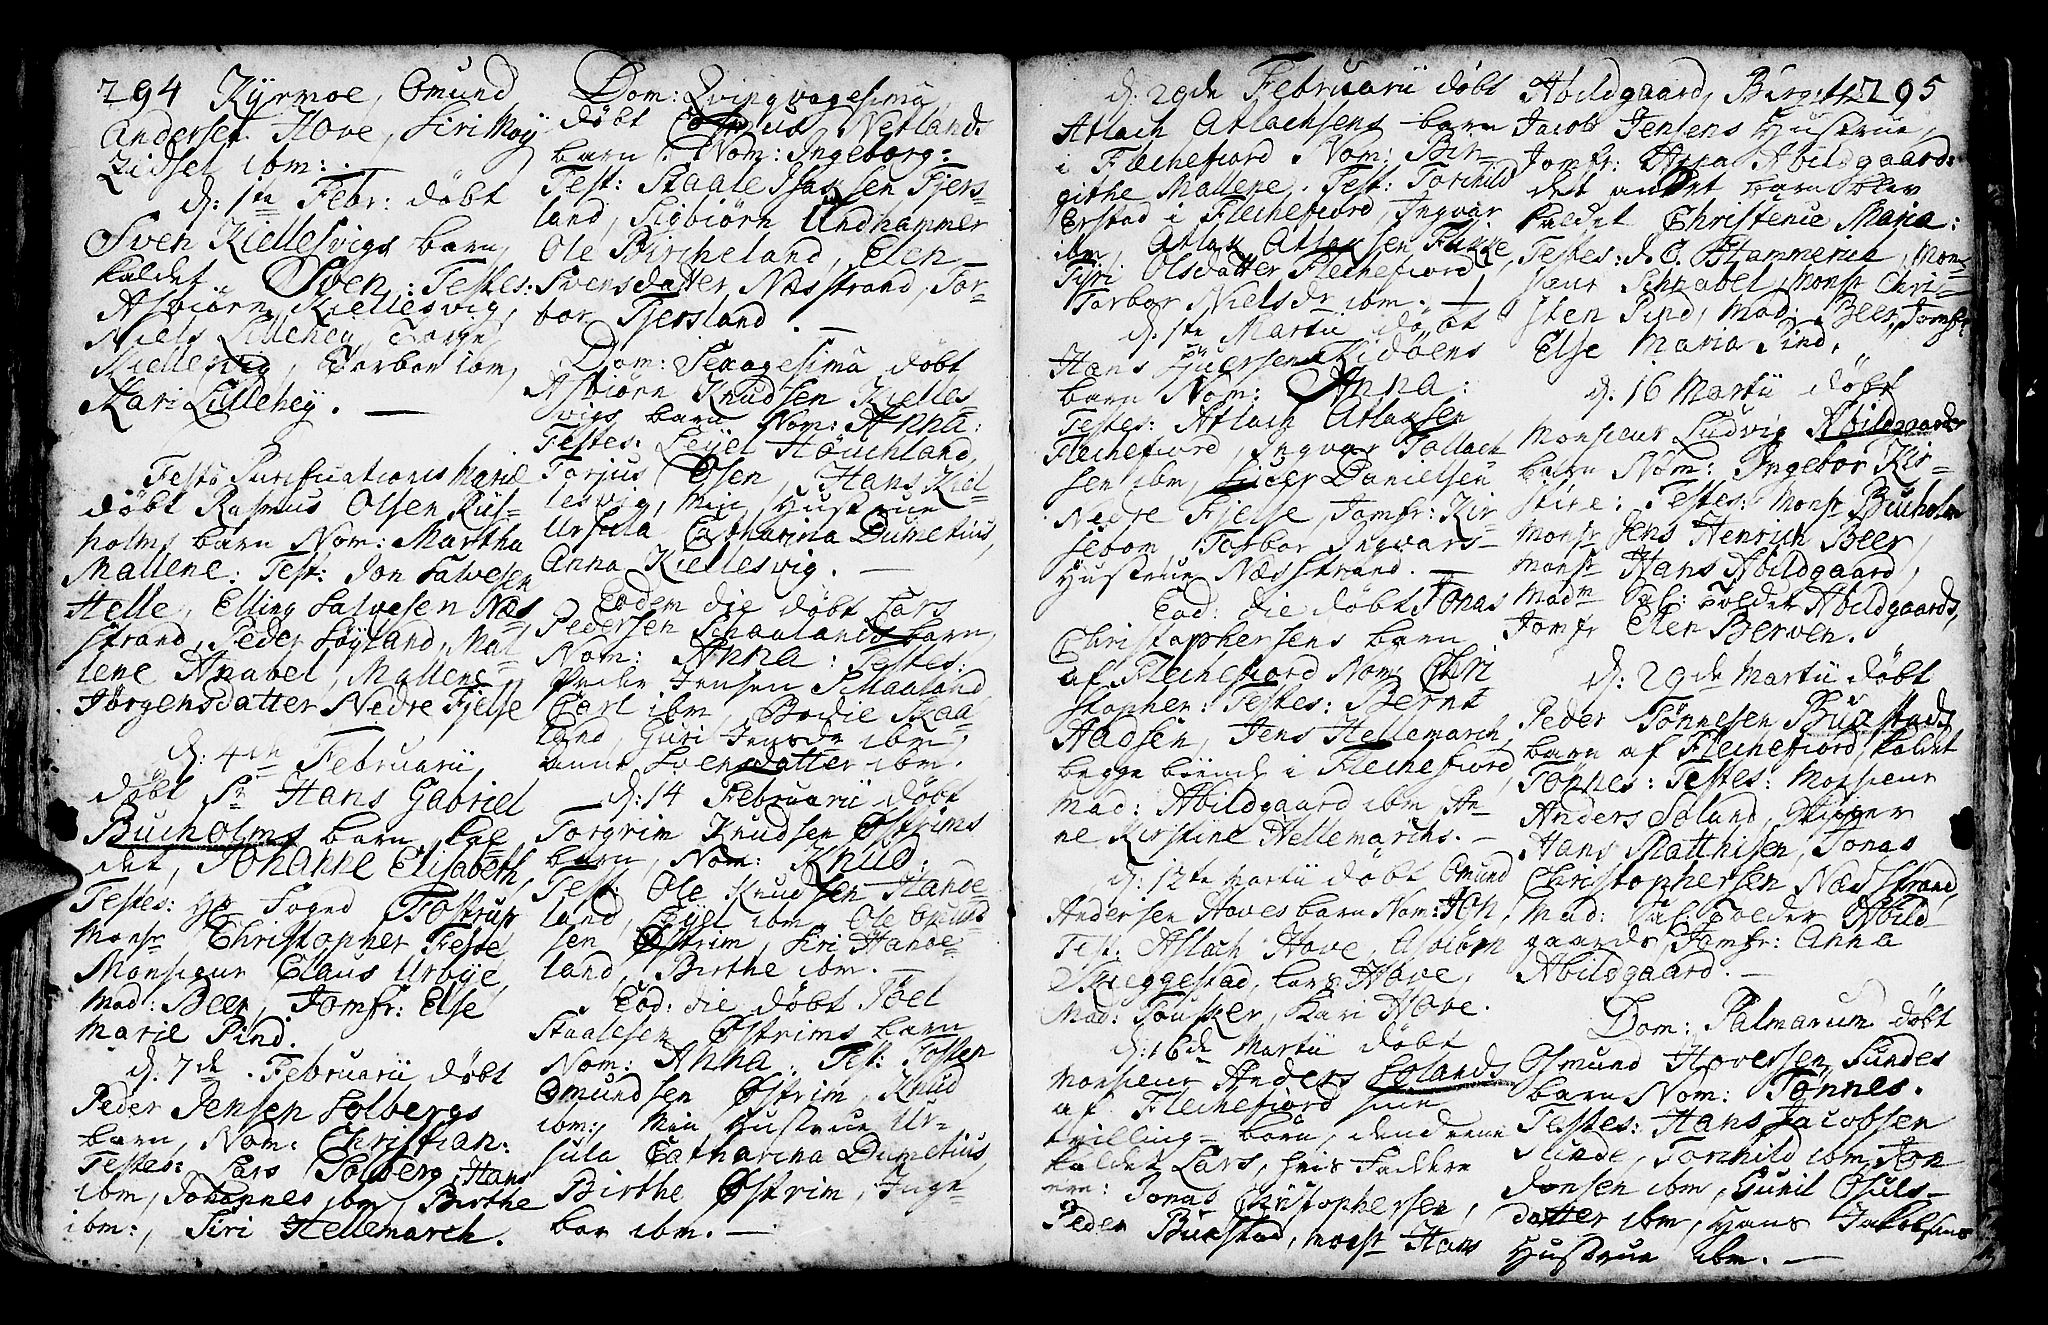 294 Kyrmoe, Omund
Andersen Hove, Siri Moÿ
Zidsel ibm:.
d: 1te Febr: døbt
Sven Kiellesvigs barn,
kaldet Sven: Testes:
Asbiørn Kiellesvig,
Niels Lillehey, Torge
Kiellesvig, Torbor ibm,
Kari Lillehey. —
Festo Purificationis Mariæ
døbt Rasmus Olsen Riis-
holms barn Nom: Martha
Mallene: Test: Jon Salvesen
Helle, Elling Salvesen Næs
strand, Peder Løyland, Mal-
lene Anabel, Mallene
Jørgensdatter Nedre Fjelse
d: 4de Februarii
døbt Sr Hans Gabriel
Bucholms barn, kal
det, Johanne Elisabeth,
Testes: Hr Fogd Tostrup
Monsr Christopher Feste,
Monsieur Claus Urbye,
Mad: Beer, Jomfr: Else
Marie Pind.
d: 7de Februarii døbt
Peder Jensen Solbergs
barn, Nom: Christian:
Testes: Lars Solberg, Hans
ibm, Johannes ibm, Birthe
ibm:, Siri Hellemarch.
Dom: Qvinqvagesima,
døbt Netlands
barn. Nom: Ingeborg:
Test: Staale Isaksen Fjers-
land, Sigbiørn Undhammer
Ole Bircheland, Elen
Svensdatter, Næsstrand, Tor-
bor Tjersland. —
Dom: Sexagesima døbt
Asbiørn Knudsen Kielles
vigs barn Nom: Anna:
Testes: Leÿel Høuchland,
Torjus Osen, Hans Kiel-
lesvig, Min Hustrue
Ursula Catharina Dumetius,
Anna Kiellesvig. —
Eodem die døbt Lars
Pedersen Schaalands barn,
Nom: Anna: Testes:
Peder Jensen Schaaland
Carl ibm, Bodie Skaa-
land, Guri Jensdr ibm,
Anne Svensdatter ibm.
d: 14 Februarii døbt
Torgrim Knudsen Østrims
barn, Nom: Knud.
Test: Ole Knudsen Hande-
land, Eÿel ibm Ole Omund
sen Østrim, Siri Hande-
land, Birthe ibm. —
Eod: die døbt Joel
Staalesen Østrims barn
Nom: Anna. Test: Tosten
Omundsen Østrim, Knud
ibm:, Min Hustrue Ur-
sula Catharina Dumetius,
Birthe Østrim, Inge-
bor ibm. —
d: 29de Februarii døbt
Atlach Atlachsens barn
i Flechefiord Nom: Bir-
githe Mallene. Test: Torchild
Erstad i Flechefiord Ingvar
ibm, Atlak Atlaksen Fikke
Siri Olsdatter Flechefiord,
Torbor Nielsdr ibm. —
d. 1te Martii døbt
Hans Hidøens
barn Nom: Anna:
Testes: Atlach Atlaksen
Flechefiord, Ingvar Tollach
sen ibm, Siver Danielsen
Nedre Fjelse, Jomfr: Kir-
sebom Torbor Ingvars-
Hustrue Nædstrand. —
Eod: die døbt Jonas
Christophersens barn
af Flechefiord Nom: Chri
stopher: Testes: Bernt
Aadsen, Jens Hellemarch,
begge boende i Flechefiord
Mad: Abildgaard ibm, An-
ne Kirstine Hellemarchs. —
d: 12te Martii døbt Omund
Andersen Hoves barn Nom: Jon,
Test: Aslach Hove, Asbiørn
Skieggestad, Lars Hove,
Mad: Tousker, Kari Hove.
d: 16de Martii døbt
Monsieur Anders Solands
af Flechefiord sine
tvilling-børn, den eene
kaldet Lars, hvis faddere
ere: Jonas Christophersen,
Peder Buestad, Monsr Hans
Abildgaard, Birgitte 295
Jacob Jensens Hustrue,
Jomfr: Anna Abildgaard:
det andet barn blev
kaldet Christence Maria:
Testes: d. C. Stammerin, Mon-
sieur Schnabel, Monsr Chri-
sten Pind, Mad: Beer, Jomfr
Else Maria Pind.
d. 16 Martii døbt
Monsieur Ludvig Abildgaards
barn Nom: Ingebor Kir-
stine: Testes: Monsr Bucholm
Monsr Jens Henrich Beer,
Monsr Hans Abildgaard,
Madm Sal: Polder Abildgaards,
Jomfr Elen Berven.
d: 29de Martii døbt
Peder Tønnesen Buestads
barn af Flechefiord kaldet
Tønnes: Testes: Monsieur
Anders Soland, Skipper
Hans Matthisen, Jonas
Christophersen Nædstrand,
Mad: Sal: Polder Abild
gaards, Jomfr: Anna
Abildgaard. —
Dom: Palmarum døbt
Osmund Hovessen Sundes
barn Nom: Tønnes.
Testes: Hans Jacobsen
Sunde, Torchild ibm, Jon
Jonsen ibm, Gunil Osuls-
datter ibm, Hans Jakobsens
Hustrue ibm. —